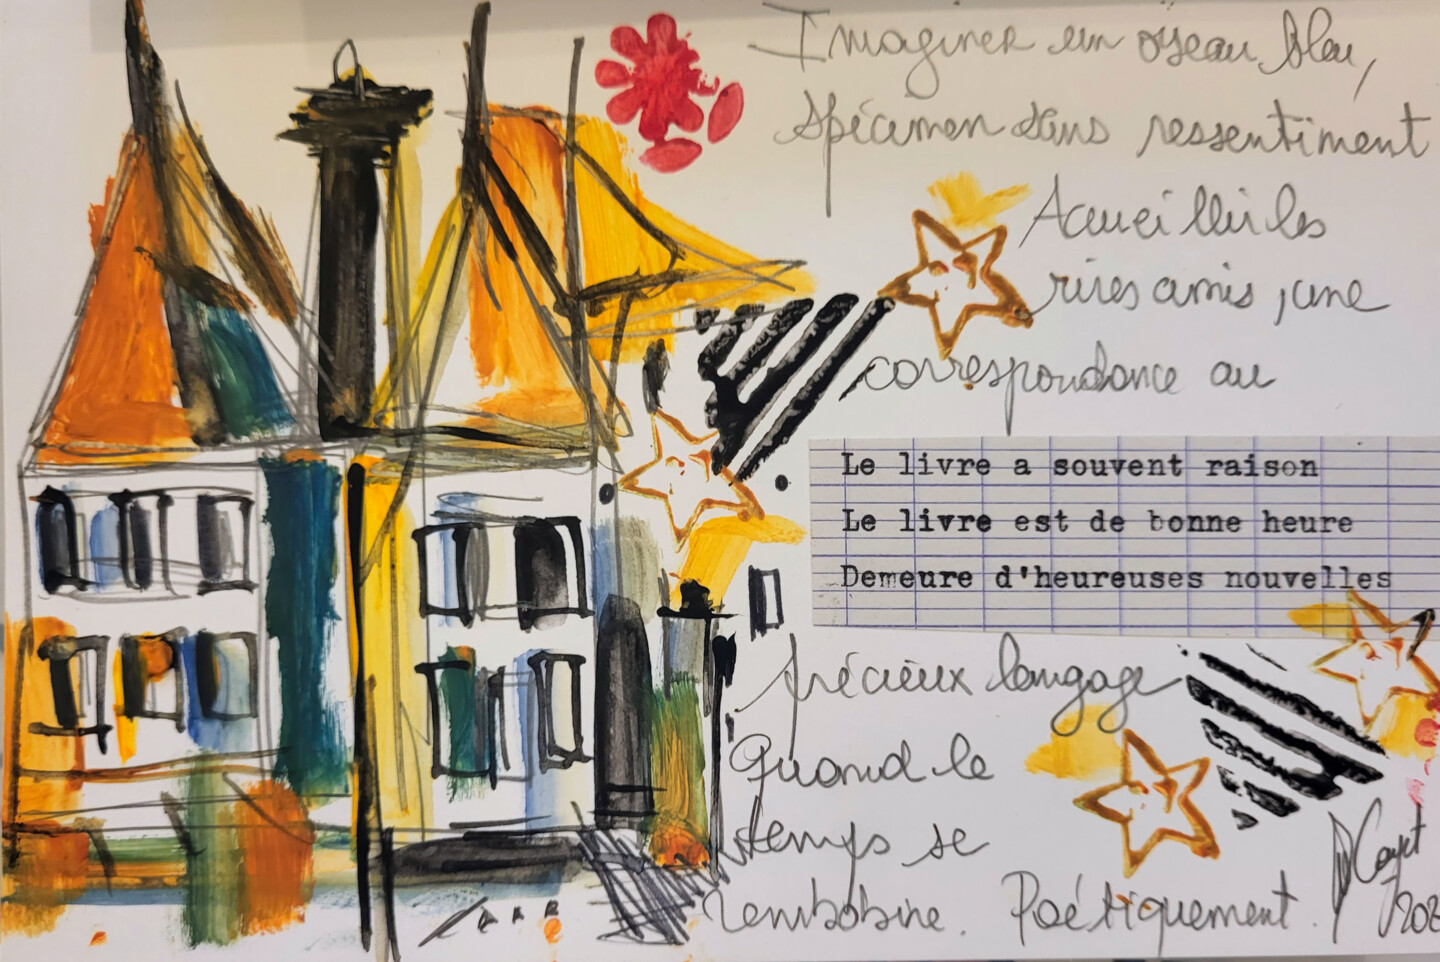 Imaginer un oyseau bleu,
Spécimen sans ressentiment
Accueillir les
rires amis, une
correspondance au
Le livre a souvent raison
Le livre est de bonne heure
Demeure d'heureuses nouvelles
précieux langage
Quand le
temps se
rembobine. Poétiquement.